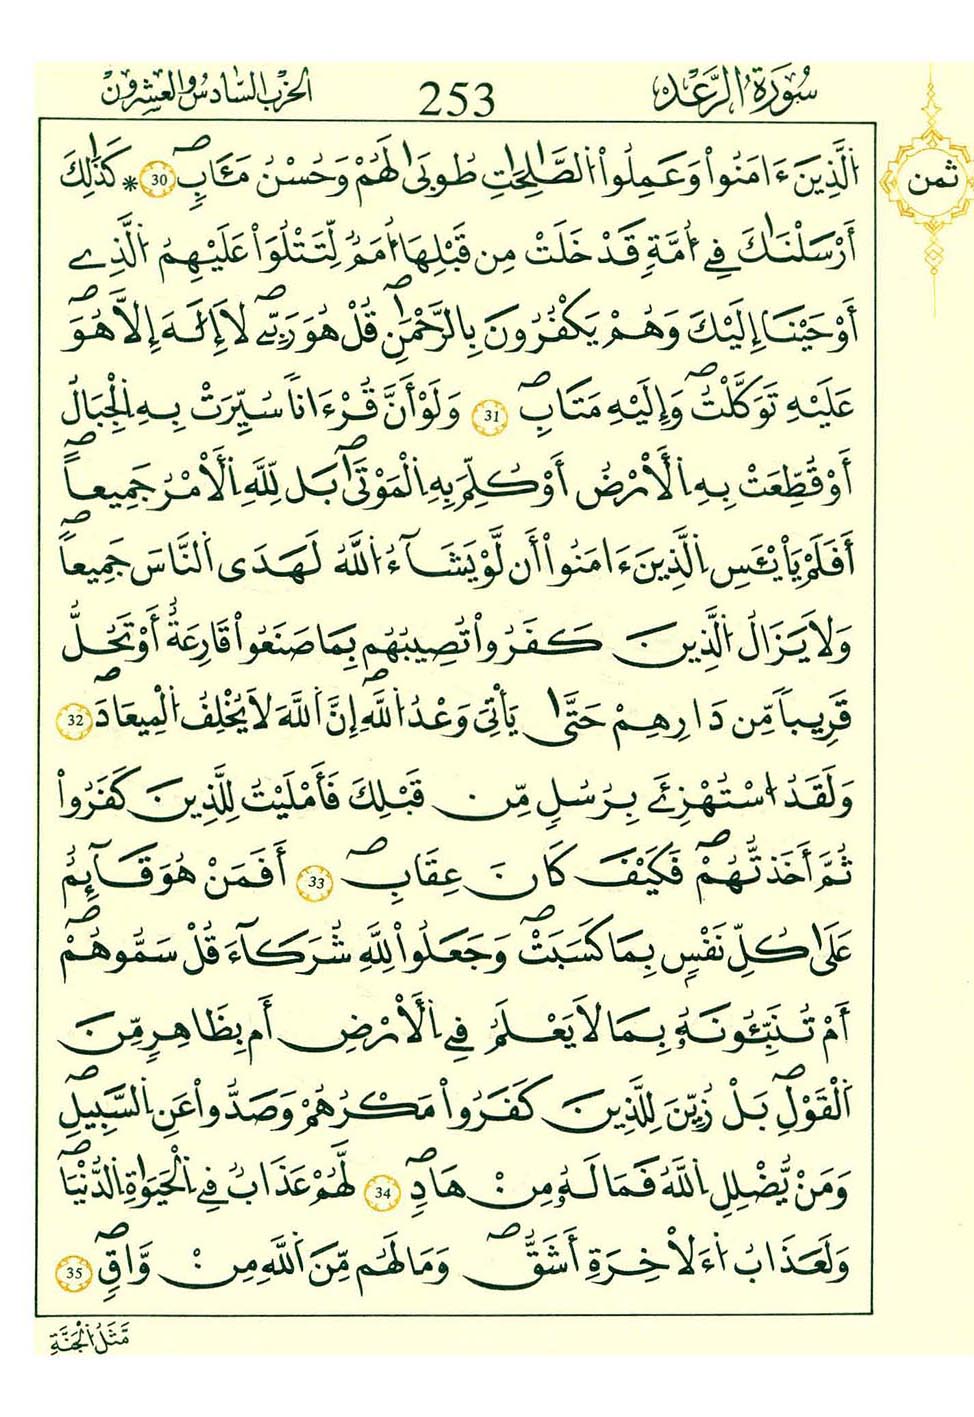 سُورَةُ الرَّعْدِ 253 الحزب السادس والعشرون
ثمن
اَلذِينَ ءَامَنُواْ وَعَمِلُواْ اُلصَّٰلِحَٰتِ طُوبَىٰ لَهُمْ وَحُسْنُ مَـَٔابٖ 30 * كَذَٰلِكَ
أَرْسَلْنَٰكَ فِے أُمَّةٖ قَدْ خَلَتْ مِن قَبْلِهَا أُمَمٞ لِّتَتْلُوَاْ عَلَيْهِمُ اُلذِے
أَوْحَيْنَا إِلَيْكَ وَهُمْ يَكْفُرُونَ بِالرَّحْمَٰنِ قُلْ هُوَ رَبِّے لَا إِلَٰهَ إِلَّا هُوَ
عَلَيْهِ تَوَكَّلْتُ وَإِلَيْهِ مَتَابِ 31 وَلَوْ أَنَّ قُرْءَاناٗ سُيِّرَتْ بِهِ اِلْجِبَالُ
أَوْ قُطِّعَتْ بِهِ اِلْأَرْضُ أَوْ كُلِّمَ بِهِ اِلْمَوْتَىٰ بَل لِّلهِ اِلْأَمْرُ جَمِيعاً
أَفَلَمْ يَاْيْـَٔسِ اِلذِينَ ءَامَنُواْ أَن لَّوْ يَشَآءُ اُللَّهُ لَهَدَى اَلنَّاسَ جَمِيعاٗ
وَلَا يَزَالُ اُلذِينَ كَفَرُواْ تُصِيبُهُم بِمَا صَنَعُواْ قَارِعَةٌ أَوْ تَحُلُّ
قَرِيباٗ مِّن دَارِهِمْ حَتَّىٰ يَأْتِيَ وَعْدُ اُللَّهِ إِنَّ اَللَّهَ لَا يُخْلِفُ اُلْمِيعَادَ 32
وَلَقَدُ اُسْتُهْزِئَ بِرُسُلٖ مِّن قَبْلِكَ فَأَمْلَيْتُ لِلذِينَ كَفَرُواْ
ثُمَّ أَخَذتُّهُمْ فَكَيْفَ كَانَ عِقَابِ 33 أَفَمَنْ هُوَ قَآئِمٌ
عَلَىٰ كُلِّ نَفْسٖ بِمَا كَسَبَتْ وَجَعَلُواْ لِلهِ شُرَكَآءَ قُلْ سَمُّوهُمْ
أَمْ تُنَبِّـُٔونَهُۥ بِمَا لَا يَعْلَمُ فِے اِلْأَرْضِ أَم بِظَٰهِرٖ مِّنَ
اَلْقَوْلِ بَلْ زُيِّنَ لِلذِينَ كَفَرُواْ مَكْرُهُمْ وَصَدُّواْ عَنِ اِلسَّبِيلِ
وَمَنْ يُّضْلِلِ اِللَّهُ فَمَا لَهُۥ مِنْ هَادٖ 34 لَّهُمْ عَذَابٞ فِے اِلْحَيَوٰةِ اِلدُّنْيَا
وَلَعَذَابُ اُءَلْأخِرَةِ أَشَقُّ وَمَا لَهُم مِّنَ اَللَّهِ مِنْ وَّاقٖ 35
مَّثَلُ اُلْجَنَّةِ